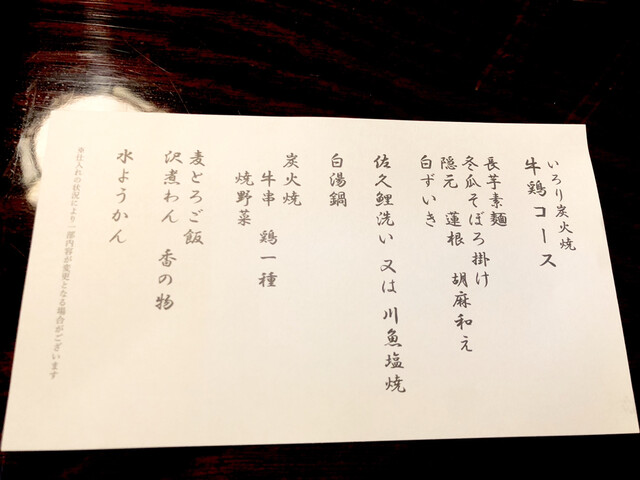 いろり炭火焼
牛鶏コース
長芋素麺
冬瓜そぼろ掛け
隠元 蓮根 胡麻和え
白ずいき
佐久鯉洗い 又は 川魚塩焼
白湯鍋
炭火焼
牛串 鶏一種
焼野菜
麦とろご飯
沢煮わん 香の物
水ようかん
※仕入れの状況により一部内容が変更となる場合がございます